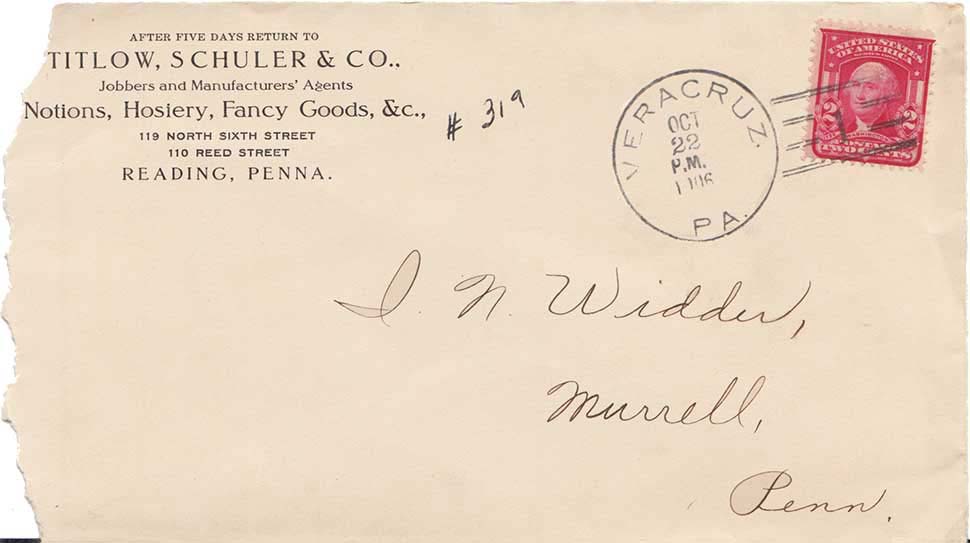 AFTER FIVE DAYS RETURN TO
TITLOW, SCHULER & CO.,
Jobbers and Manufacturers' Agents
Notions, Hosiery, Fancy Goods, &c.,
119 NORTH SIXTH STREET
110 REED STREET
READING, PENNA.
# 319
VERACRUZ.
OCT
22
P.M.
1906
PA.
UNITED STATES
OF AMERICA
2 2
TWO CENTS
I. N. Widder,
Murrell,
Penn.